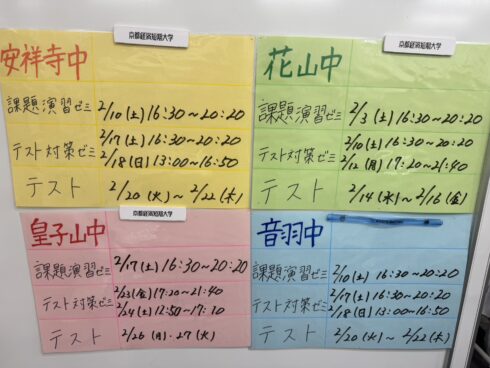 京都経済短期大学
安祥寺中
課題演習ゼミ 2/10(土)16:30~20:20
テスト対策ゼミ 2/17(土)16:30~20:20
2/18(日)13:00~16:50
テスト 2/20(火)~2/22(木)
京都経済短期大学
花山中
課題演習ゼミ 2/3(土)16:30~20:20
テスト対策ゼミ 2/10(土)16:30~20:20
2/12(月)17:20~21:40
テスト 2/14(水)~2/16(金)
京都経済短期大学
皇子山中
課題演習ゼミ 2/17(土)16:30~20:20
テスト対策ゼミ 2/23(金)17:20~21:40
2/24(土)12:50~17:10
テスト 2/26(月)・27(火)
音羽中
課題演習ゼミ 2/10(土)16:30~20:20
テスト対策ゼミ 2/17(土)16:30~20:20
2/18(日)13:00~16:50
テスト 2/20(火)~2/22(木)